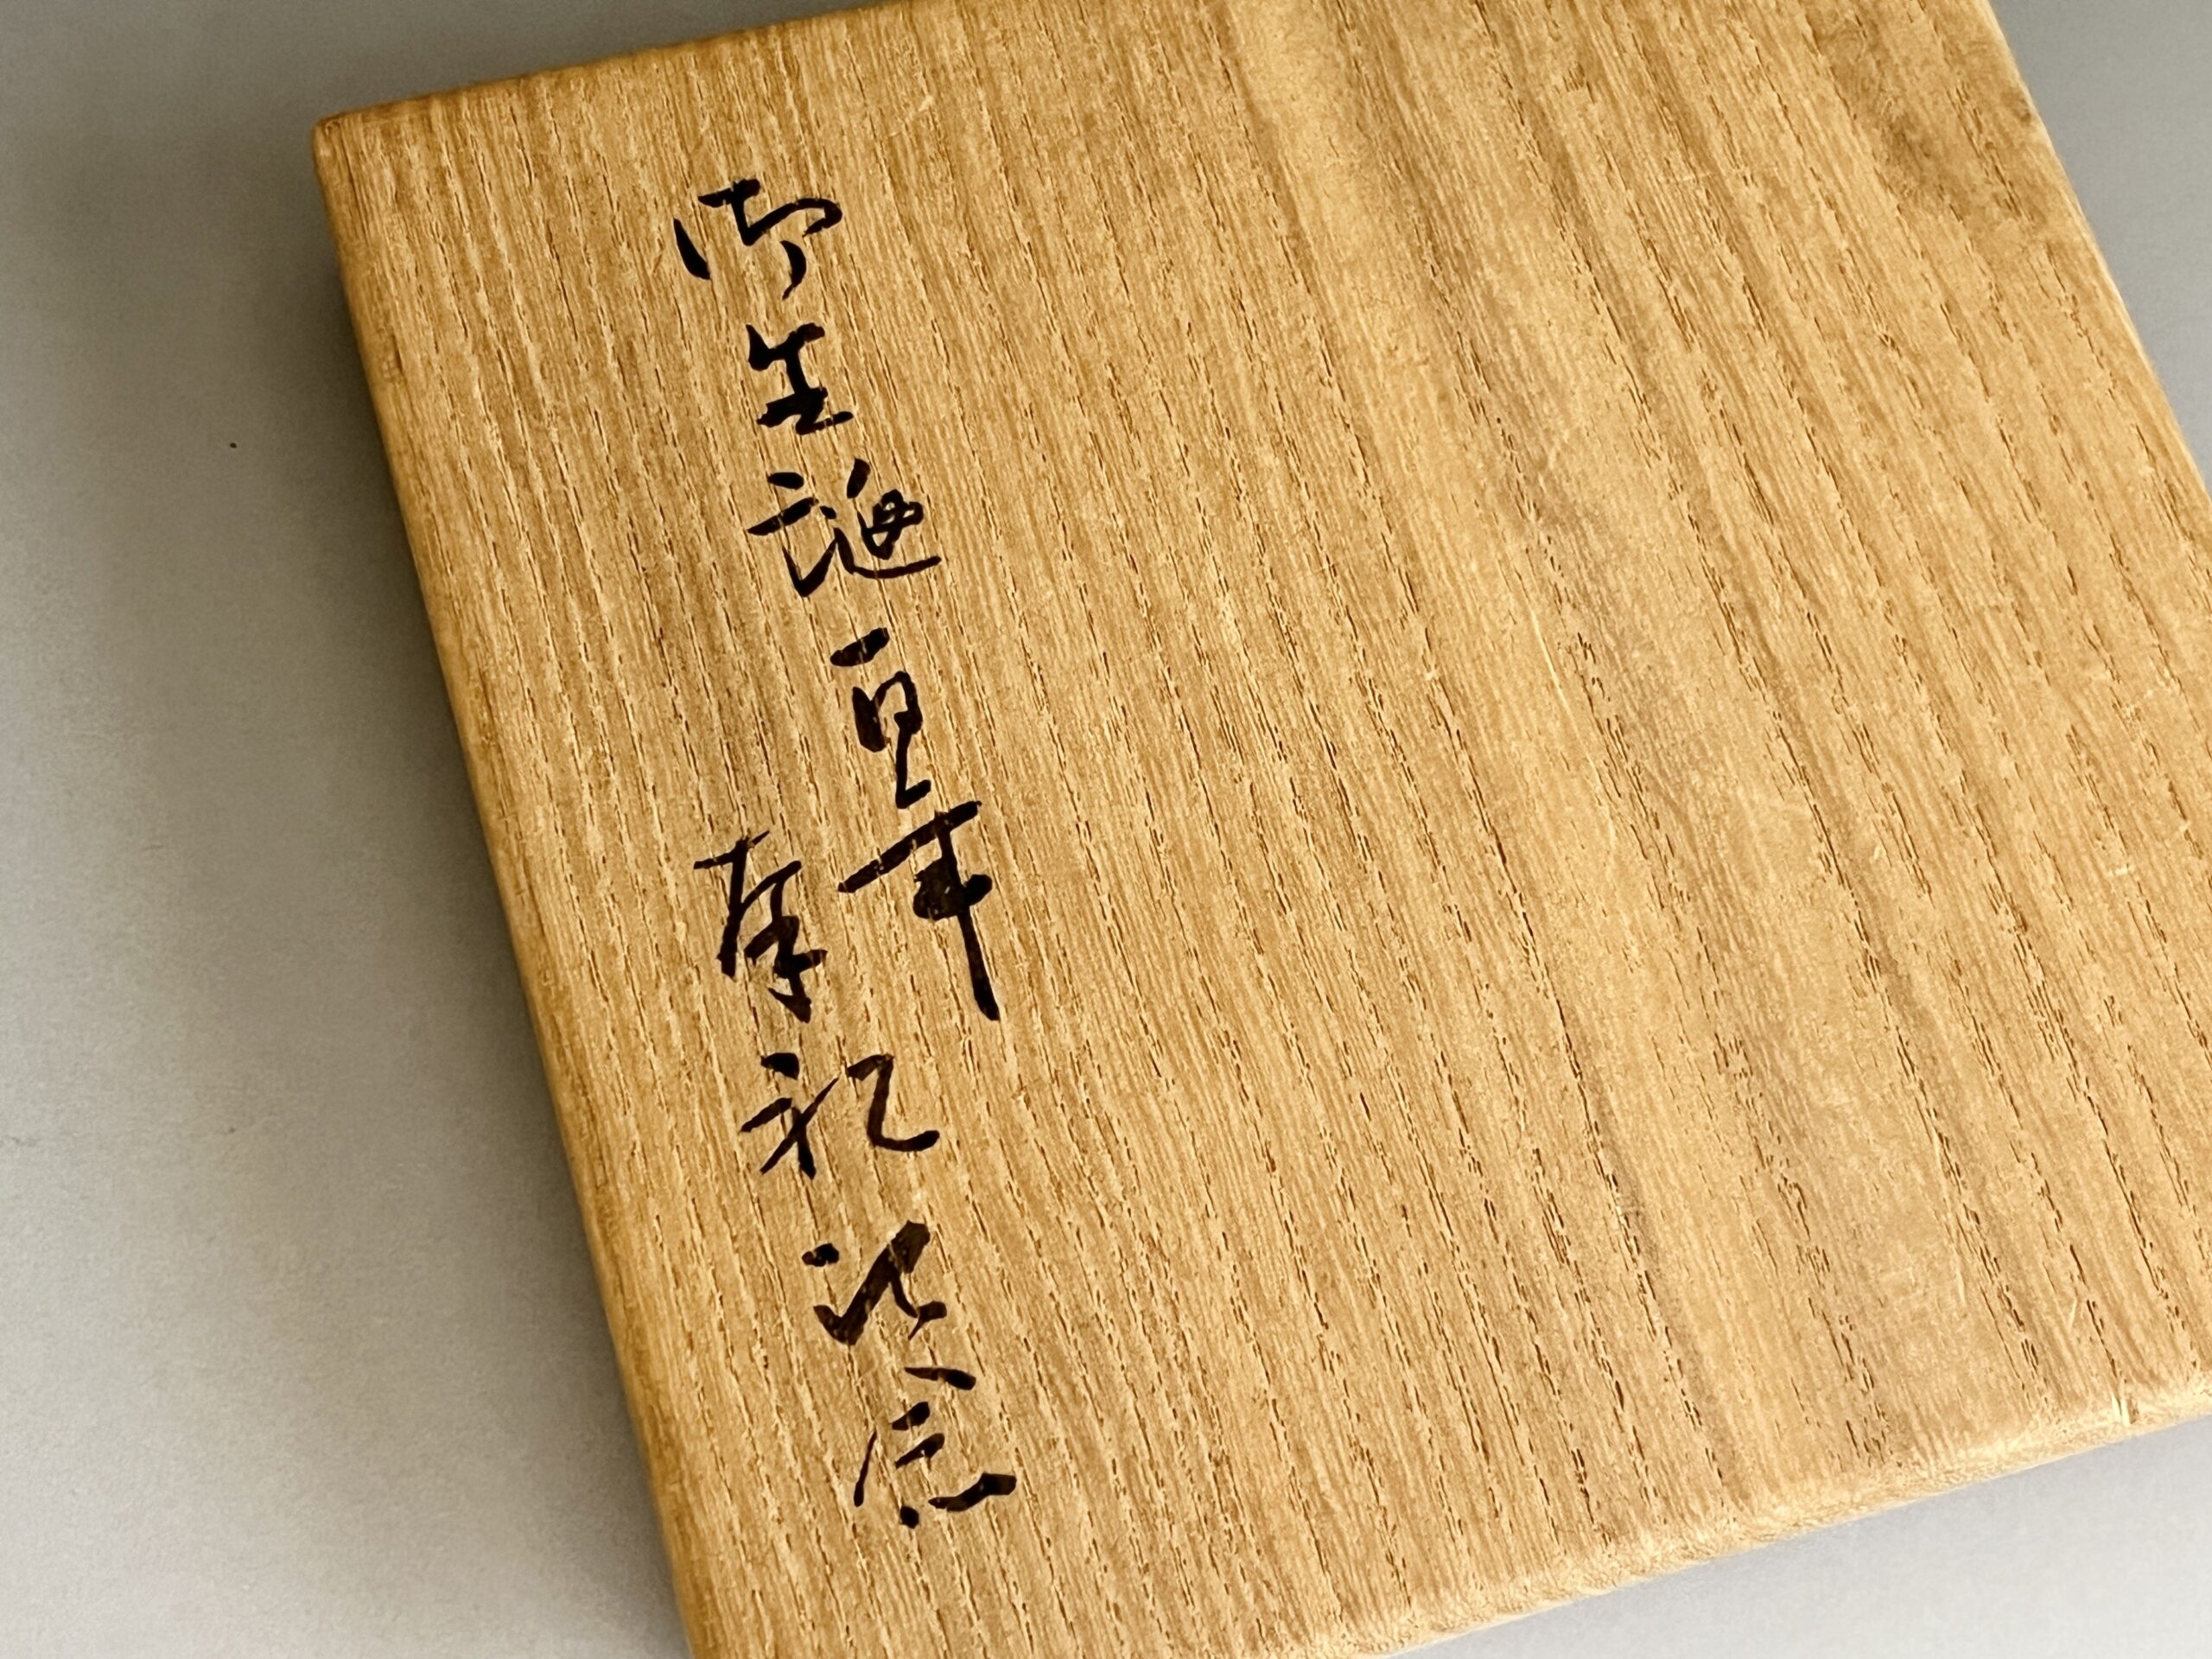 御生誕百年
奉祝記念